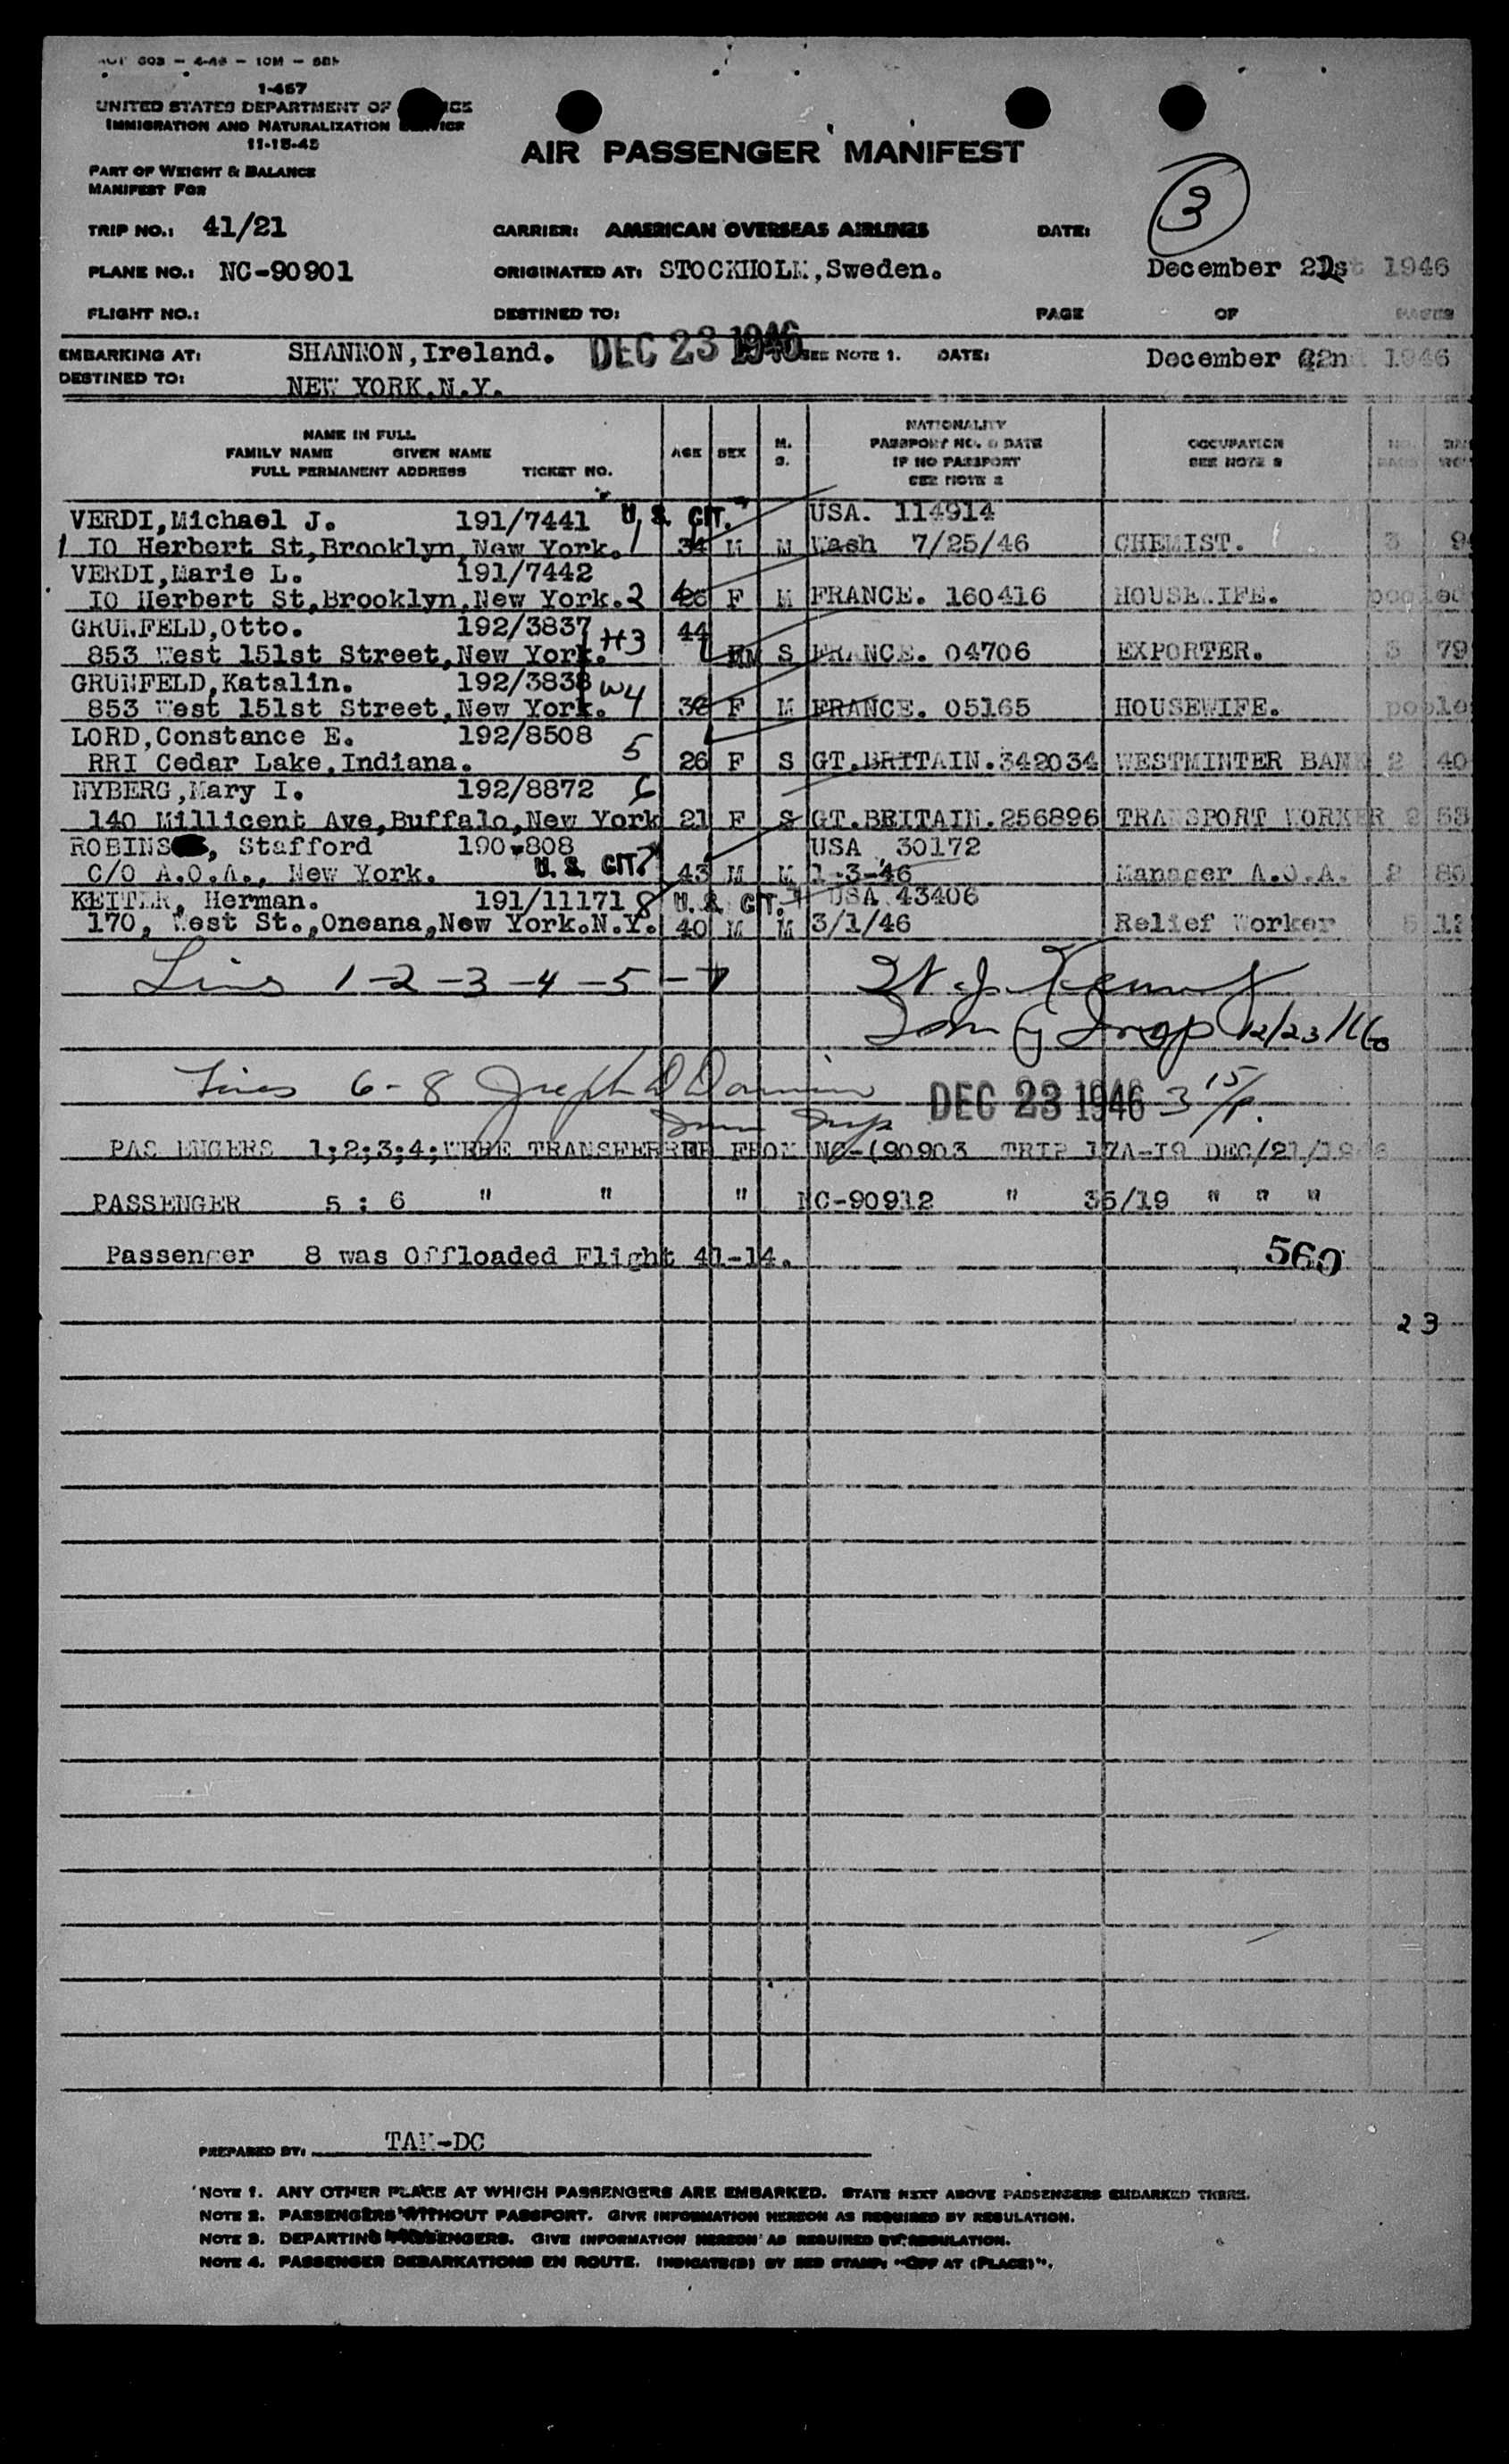 1-457
UNITED STATES DEPARTMENT OF
IMMIGRATION AND NATURALIZATION SERVICE
11-15-45
AIR PASSENGER MANIFEST
PART OF WEIGHT & BALANCE
MANIFEST FOR
3
TRIP NO.: 41/21 CARRIER: AMERICAN OVERSEAS AIRLINES DATE:
PLANE NO.: NC-90901 ORIGINATED AT: STOCKHOLM,Sweden. December 1946
FLIGHT NO.: DESTINED TO: PAGE OF PAGES
EMBARKING AT: SHANNON,Ireland. DEC 23 1946 SEE NOTE 1. DATE: December 22nd 1946
DESTINED TO: NEW YORK.N.Y.
NAME IN FULL
FAMILY NAME GIVEN NAME
FULL PERMANENT ADDRESS TICKET NO.
AGE SEX M. S.
NATIONALITY
PASSPORT NO. & DATE
IF NO PASSPORT
SEE NOTE 2
OCCUPATION
SEE NOTE 3
VERDI,Michael J. 191/7441 U. S. CIT. USA. 114914
1 IO Herbert St,Brooklyn,New York. 1 34 M M Wash 7/25/46 CHEMIST. 3
VERDI,Marie L. 191/7442
IO Herbert St,Brooklyn,New York. 2 26 F M FRANCE. 160416 HOUSEWIFE. pooled
GRUNFELD,Otto. 192/3837 H3 44
853 West 151st Street,New York. M S FRANCE. 04706 EXPORTER. 3 79
GRUNFELD,Katalin. 192/3838 W4
853 West 151st Street,New York. F M FRANCE. 05165 HOUSEWIFE.
LORD,Constance E. 192/8508 5
RRI Cedar Lake,Indiana. 26 F S GT.BRITAIN.342034 WESTMINTER BANK 2 40
NYBERG,Mary I. 192/8872 6
140 Millicent Ave,Buffalo,New York 21 F S GT.BRITAIN.256896 TRANSPORT WORKER 2
ROBINS , Stafford 190-808 USA 30172
C/O A.O.A., New York. U. S. CIT. 7 43 M M 1-3-46 Manager A.O.A. 2
KEITER, Herman. 191/11171 8 U. S. CIT. USA 43406
170, West St.,Oneana,New York.N.Y. 40 M M 3/1/46 Relief Worker
Lines 1-2-3-4-5-7
12/23/46
Lines 6-8 Joseph D DEC 23 1946 3 15/P.
Imm Insp
PASSENGERS 1;2;3;4;WERE TRANSFERRED FROM NC-(90903 TRIP 17A-19 DEC/21/1946
PASSENGER 5 : 6 " " " NC-90912 " 35/19 " " "
Passenger 8 was Offloaded Flight 41-14.
560
23
PREPARED BY:
NOTE 1. ANY OTHER PLACE AT WHICH PASSENGERS ARE EMBARKED. STATE NEXT ABOVE PASSENGERS EMBARKED THERE.
NOTE 2. PASSENGERS WITHOUT PASSPORT. GIVE INFORMATION HEREON AS REQUIRED BY REGULATION.
NOTE 3. DEPARTING PASSENGERS. GIVE INFORMATION HEREON AS REQUIRED BY REGULATION.
NOTE 4. PASSENGER DEBARKATIONS EN ROUTE. INDICATE(D) BY RED STAMP: "OFF AT (PLACE)".